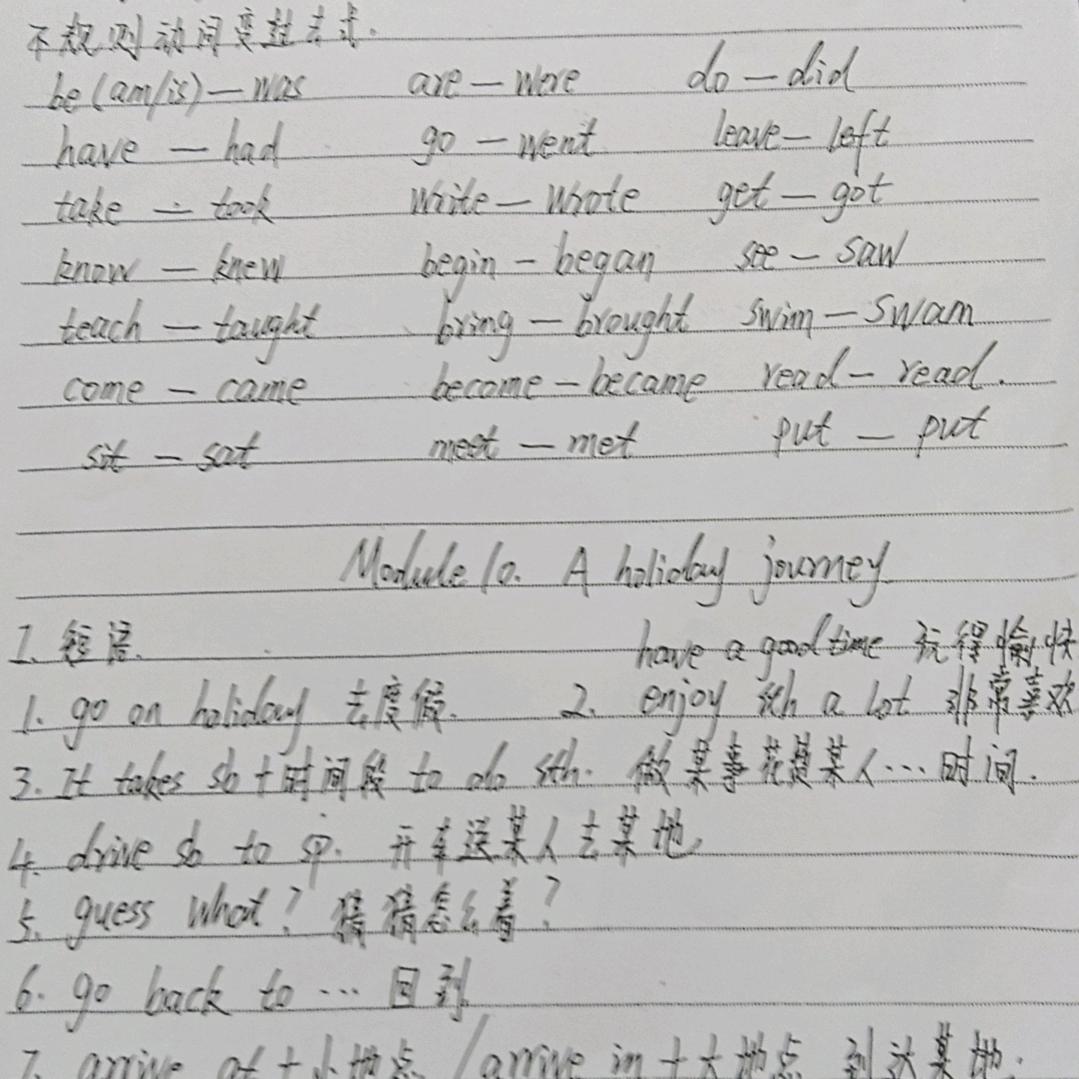 不规则动词变过去式.
be(am/is)—was are—were do—did
have—had go—went leave—left
take—took write—wrote get—got
know—knew begin—began see—saw
teach—taught bring—brought swim—swam
come—came become—became read—read.
sit—sat meet—met put—put
Module 10. A holiday journey
I. 短语. have a good time 玩得愉快
1. go on holiday 去度假. 2. enjoy sth a lot 非常喜欢
3. It takes sb+时间段 to do sth. 做某事花费某人…时间.
4. drive sb to sp. 开车送某人去某地
5. guess what? 猜猜怎么着?
6. go back to … 回到
7. arrive at+小地点/arrive in+大地点 到达某地.